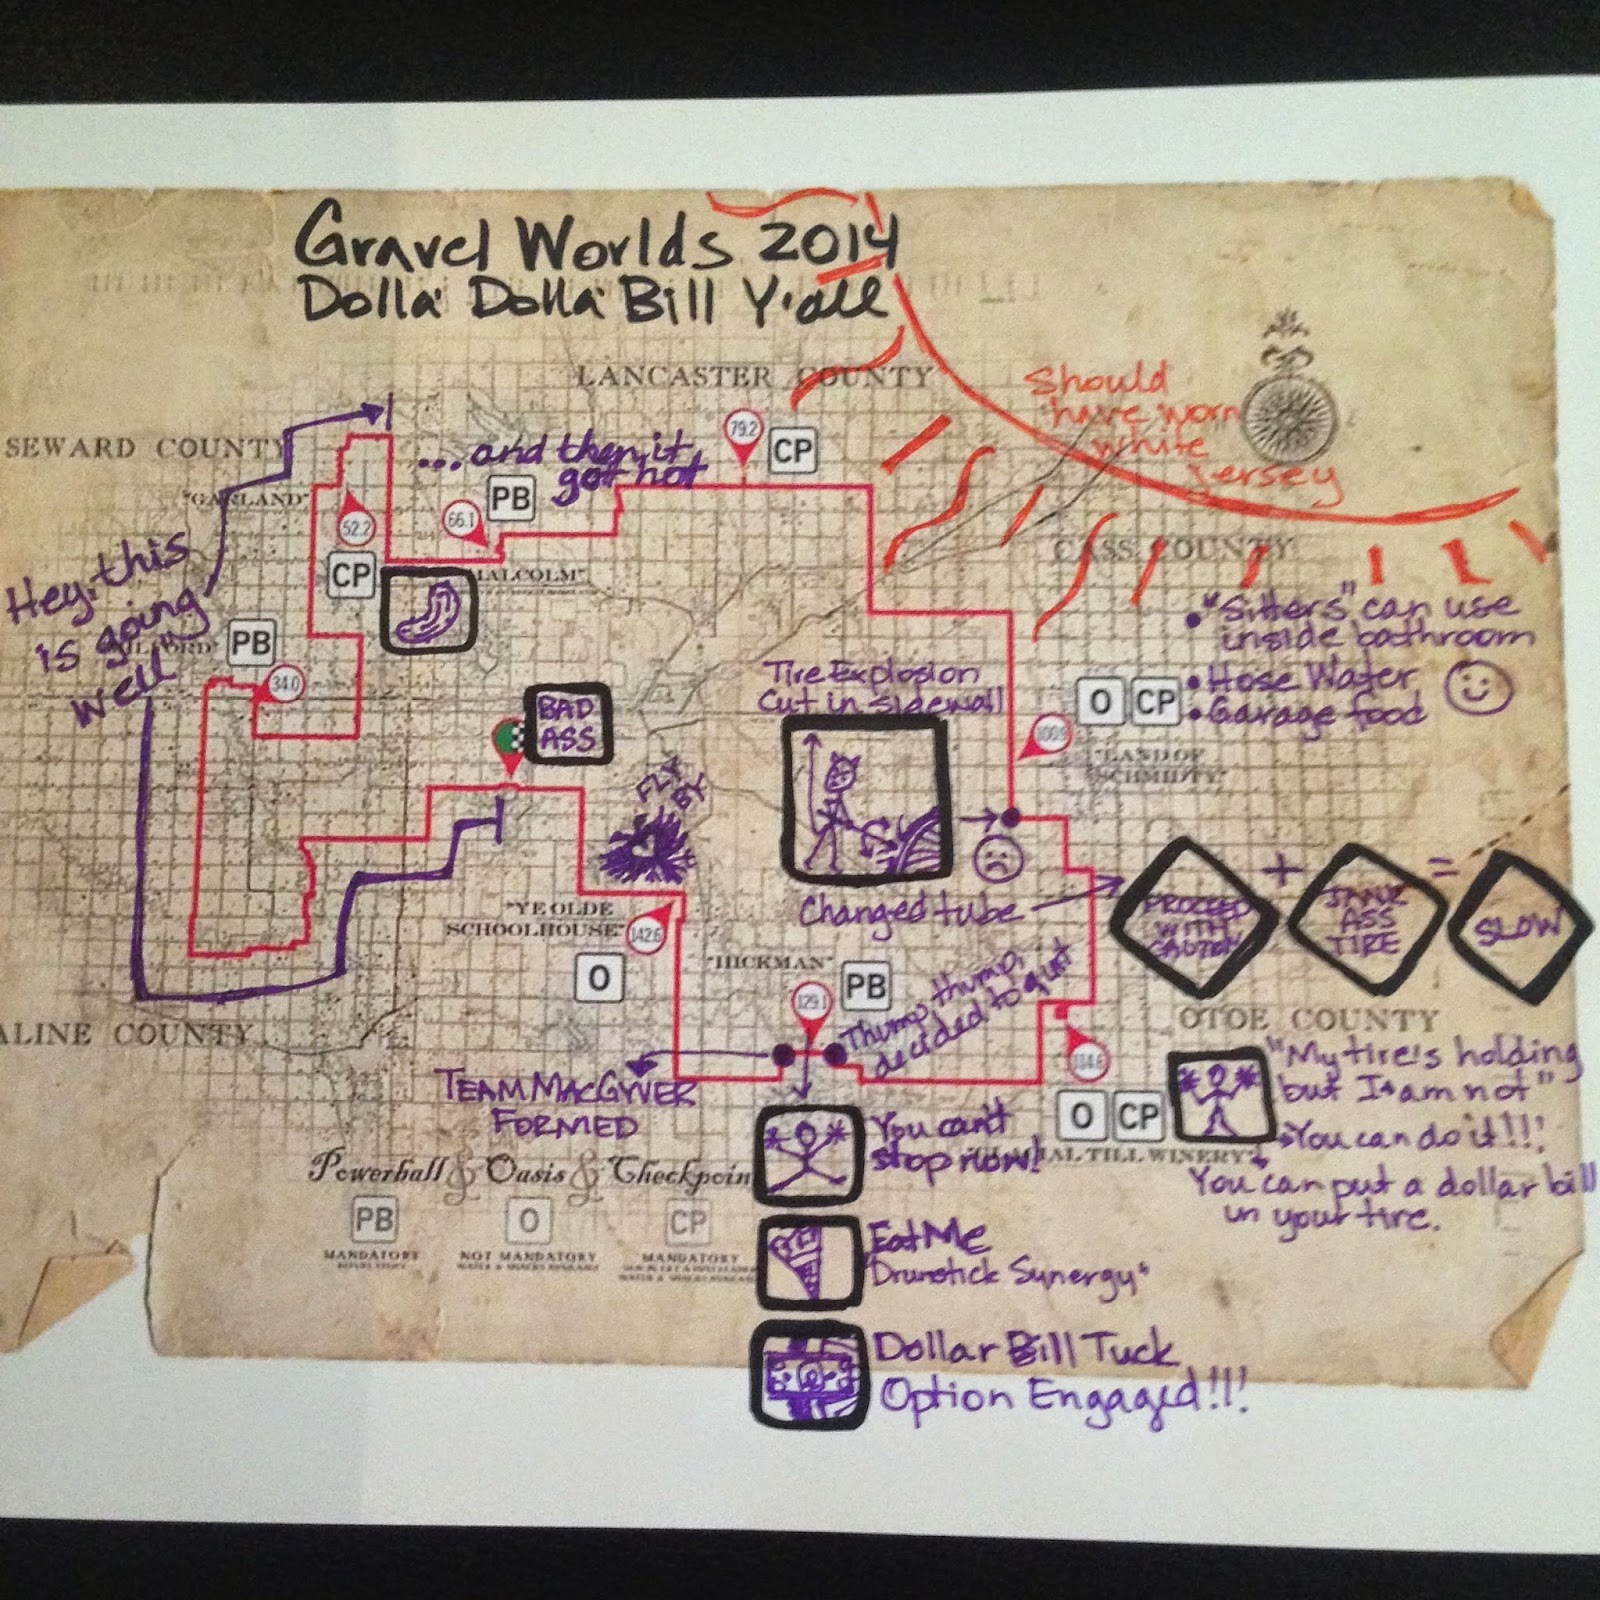 Gravel Worlds 2014
Dolla Dolla Bill Y'all
LANCASTER COUNTY
Should
have worn
white
Jersey
SEWARD COUNTY
"GARLAND"
... and then it
got hot
79.2
CP
PB
66.1
52.2
CP
CASS COUNTY
Hey, this
is going
well"
PB
34.0
BAD
ASS
FLY
BY
Tire Explosion
Cut in sidewall
• "Sitters" can use
inside bathroom
• Hose Water
• Garage food
O
CP
"LAND OF
SCHMIDTY"
Changed tube
PROCEED
WITH
CAUTION
+
JANK
ASS
TIRE
=
SLOW
"YE OLDE
SCHOOLHOUSE"
142.6
O
"HICKMAN"
129.1
PB
Thump, thump,
decided to quit
ALINE COUNTY
OTOE COUNTY
O
CP
"My tire's holding
but I am not"
You can do it!!!
You can put a dollar bill
in your tire.
TILL WINERY"
TEAM MACGYVER
FORMED
You can't
stop now!
Eat Me
"Drumstick Synergy"
Dollar Bill Tuck
Option Engaged!!!
Powerball & Oasis & Checkpoin
PB
O
CP
MANDATORY
NOT MANDATORY
MANDATORY